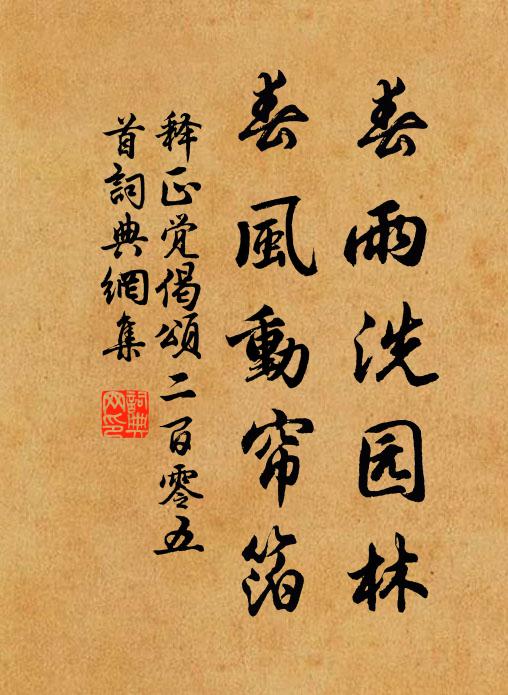 春雨洗园林
春風動帘箔
释正觉偈頌二百零五
首詞典網集
詞典
网印